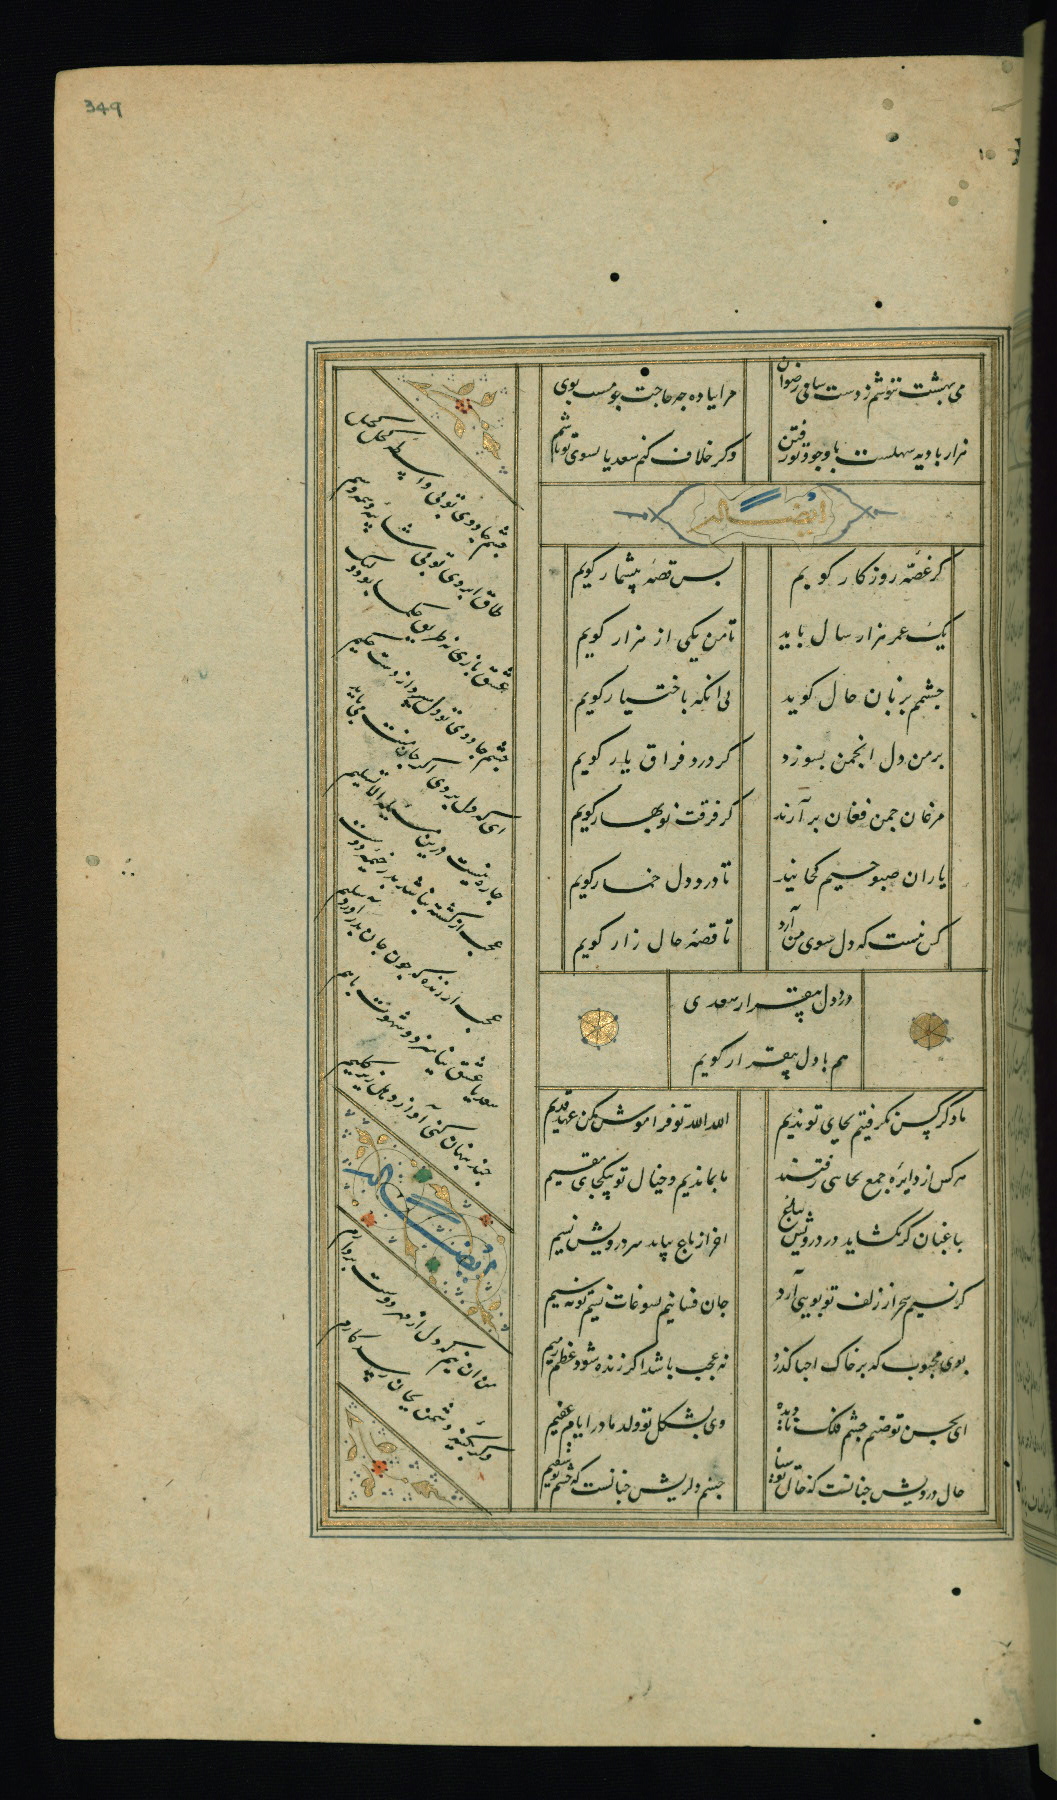 349
می بهشت ننوشم ز دست ساقی رضوان
مرا بباده چه حاجت چو مست بوی تو باشم
هزار بادیه سهلست با وجود تو رفتن
وکر خلاف کنم سعدیا بسوی تو باشم
ایضاً له
کر غصّه روزکار کویم
بس قصّه بیشمار کویم
یک عمر هزار سال باید
تا من یکی از هزار کویم
چشمم بزبان حال کوید
نی انکه باختیار کویم
بر من دل انجمن بسوزد
کر درد فراق یار کویم
مرغان چمن فغان بر آرند
کر فرقت نوبهار کویم
یاران صبوحیم کجائید
تا درد دل خمار کویم
کس نیست که دل سوی من آرد
تا قصّه حال زار کویم
درد دل بیقرار سعدی
هم با دل بیقرار کویم
ما دکر کس نکرفتیم بجای تو ندیم
الله الله تو فراموش مکن عهد قدیم
هر کس از دایره جمع بجایی رفتند
ما بماندیم و خیال تو بیکجای مقیم
باغبان کر نکشاید در درویش بباغ
اخر از باغ بیاید بر درویش نسیم
کر نسیم سحر از زلف تو بویی آرد
جان فشانیم بسوغات نسیم تو نه سیم
بوی محبوب که بر خاک احبا کذرد
نه عجب باشد اکر زنده شود عظم رمیم
ای بحسن تو صنم چشم فلک نادیده
وی بشکل تو ولد مادر ایام عقیم
حال درویش چنانست که خال تو سیاه
جسم دلریش چنانست که چشم تو سقیم
چشم جادوی تو بی واسطه کحل کحیل
طاق ابروی تو بی شائبه وسمه وسیم
عشق بازی نه طریق حکما بود ولیک
چشم جادوی تو دل میبرد از دست حکیم
ای که دل بردی اکر جان منت میباید
چاره نیست درین مسئله الا تسلیم
عجب از کشته نباشد بدر خیمه دوست
عجب از زنده که چون جان بدر آورد سلیم
سعدیا عشق نیامیزد و شهوت با هم
چند پنهان کنی آواز دهل زیر کلیم
ایضاً له
من آن نیم که دل از مهر دوست بردارم
وکر بکینه دشمن بجان رسد کارم